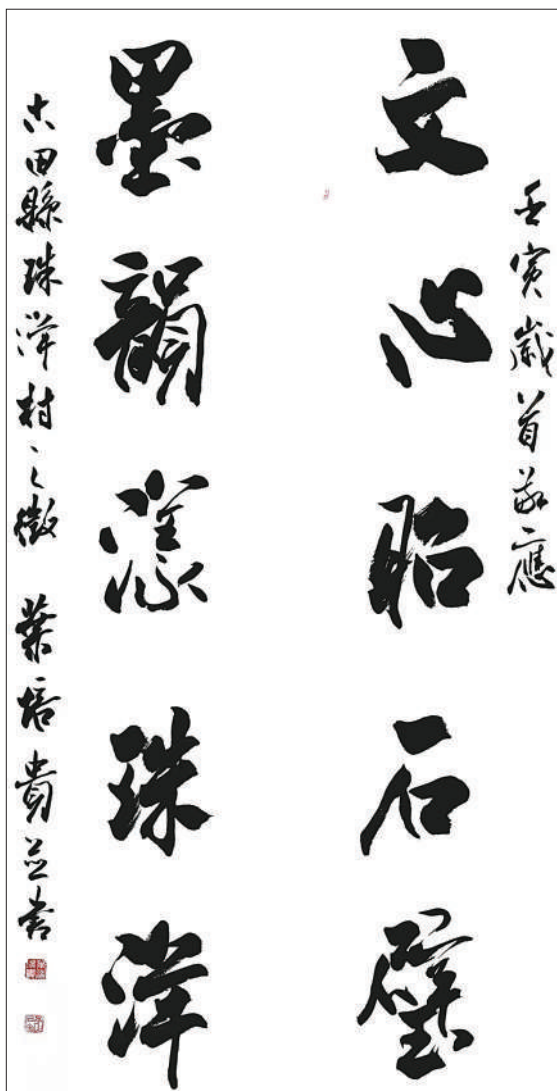 壬寅歲首敬應
文心昭石璧
墨韻漾珠洋
古田縣珠洋村之徵 葉培貴並書